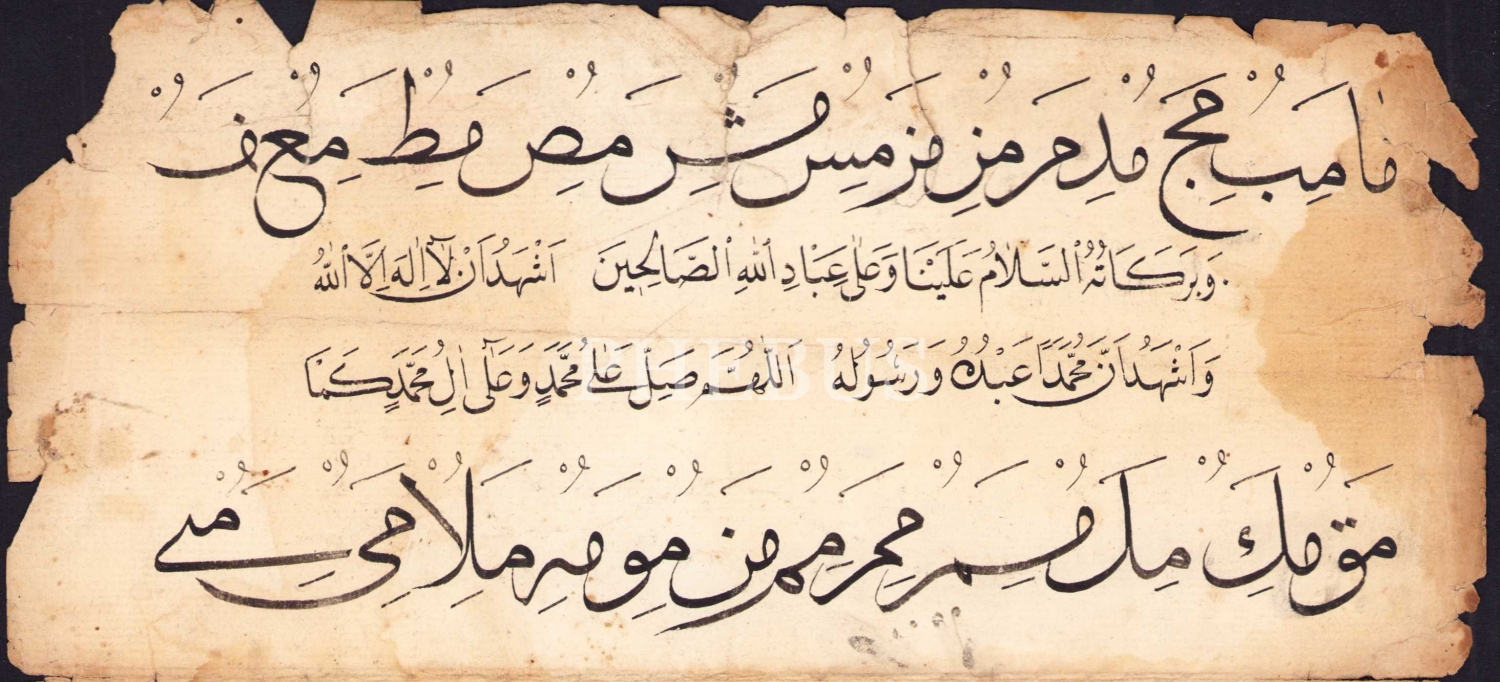 ما مب مج مد مر مز مر مس مش مص مط مع مف
وَبَرَكَاتُهُ اَلسَّلَامُ عَلَيْنَا وَعَلٰى عِبَادِ اللّٰهِ الصَّالِحِينَ اَشْهَدُ اَنْ لَٓا اِلٰهَ اِلَّا اللّٰهُ
وَاَشْهَدُ اَنَّ مُحَمَّدًا عَبْدُهُ وَرَسُولُهُ اَللّٰهُمَّ صَلِّ عَلٰى مُحَمَّدٍ وَعَلٰٓى اٰلِ مُحَمَّدٍ كَمَا
PHEBUS
مق مك مل مم من مو مه ملا مى